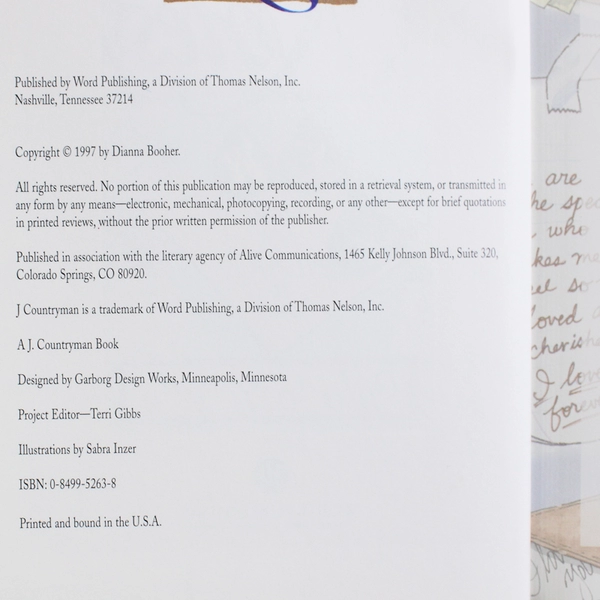 Published by Word Publishing, a Division of Thomas Nelson, Inc.
Nashville, Tennessee 37214
Copyright © 1997 by Dianna Booher.
All rights reserved. No portion of this publication may be reproduced, stored in a retrieval system, or transmitted in
any form by any means—electronic, mechanical, photocopying, recording, or any other—except for brief quotations
in printed reviews, without the prior written permission of the publisher.
Published in association with the literary agency of Alive Communications, 1465 Kelly Johnson Blvd., Suite 320,
Colorado Springs, CO 80920.
J Countryman is a trademark of Word Publishing, a Division of Thomas Nelson, Inc.
A J. Countryman Book
Designed by Garborg Design Works, Minneapolis, Minnesota
Project Editor—Terri Gibbs
Illustrations by Sabra Inzer
ISBN: 0-8499-5263-8
Printed and bound in the U.S.A.
are
who
loved
I